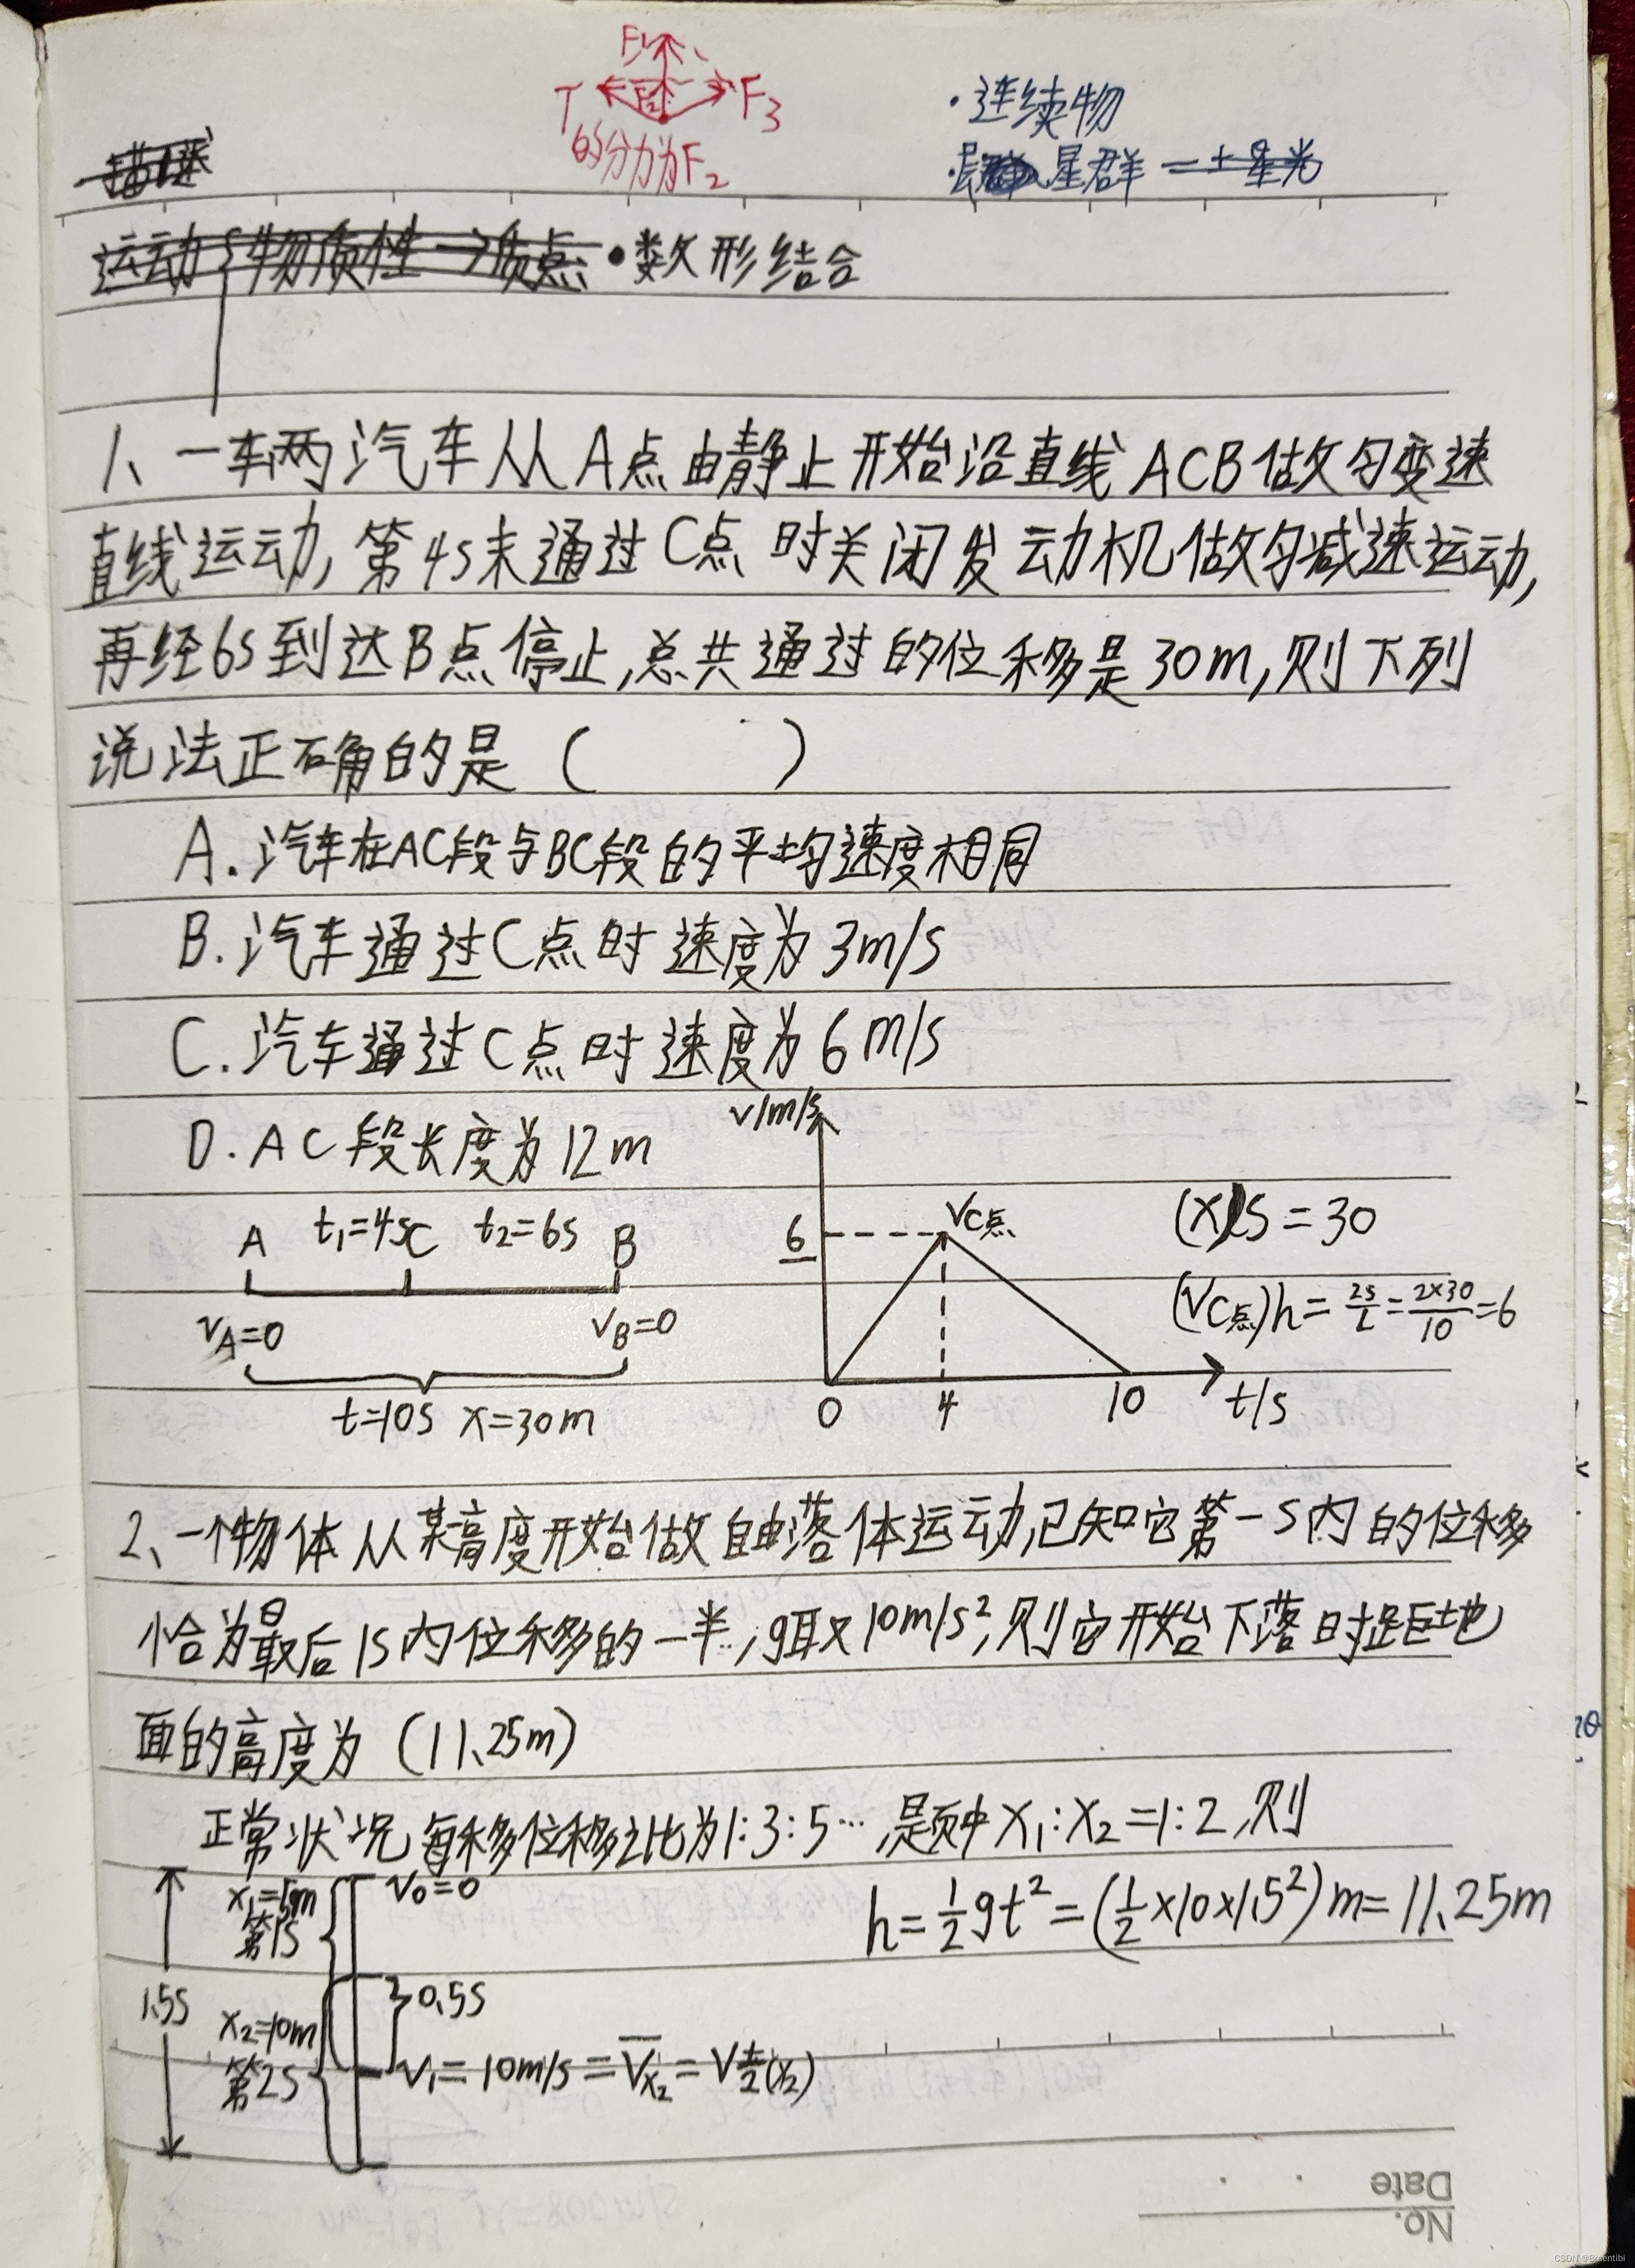 F₁
T F₃
的分力为F₂
·连续物
星群
运动{物质性→质点 ·数形结合
1、一车两汽车从A点由静止开始沿直线ACB做匀变速
直线运动,第4s末通过C点时关闭发动机做匀减速运动,
再经6s到达B点停止,总共通过的位移是30m,则下列
说法正确的是( )
A.汽车在AC段与BC段的平均速度相同
B.汽车通过C点时速度为3m/s
C.汽车通过C点时速度为6m/s
D.AC段长度为12m
v/m/s
A t₁=4s C t₂=6s B
v_A=0 v_B=0
t=10s x=30m
6 V_C点
0 4 10 t/s
(x)S=30
(V_C点)h=2s/L=2×30/10=6
2、一个物体从某高度开始做自由落体运动,已知它第一s内的位移
恰为最后1s内位移的一半,g取10m/s²,则它开始下落时距地
面的高度为(11.25m)
正常状况,每移位移之比为1:3:5…,是题中x₁:x₂=1:2,则
x₁=5m
第1s
v₀=0
h=1/2gt²=(1/2×10×1.5²)m=11.25m
1.5s
0.5s
x₂=10m
第2s
v₁=10m/s=V̅x₂=Vt/2(x₂)
2θ
Date
No.
CSDN @Breentibi